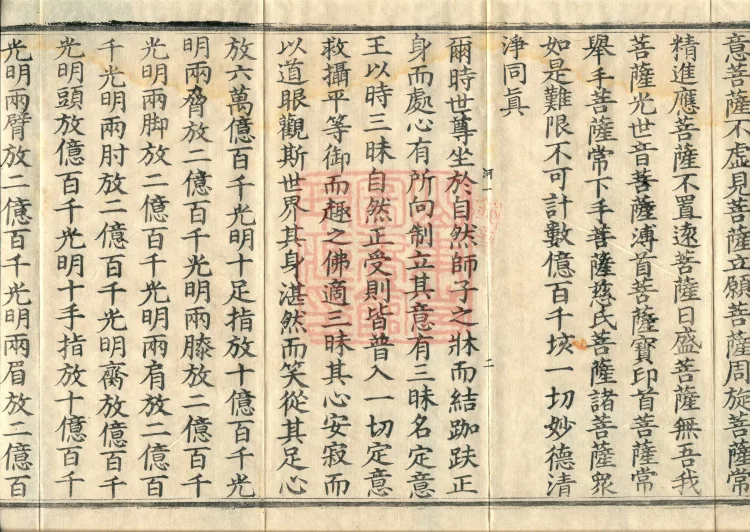 意菩薩不虛見菩薩立願菩薩周旋菩薩常
精進應菩薩不置遠菩薩日盛菩薩無吾我
菩薩光世音菩薩溥首菩薩寶印首菩薩常
舉手菩薩常下手菩薩慈氏菩薩諸菩薩眾
如是難限不可計數億百千垓一切妙德清
淨同眞
河一
二
爾時世尊坐於自然師子之牀而結跏趺正
身而處心有所向制立其意有三昧名定意
王以時三昧自然正受則皆普入一切定意
救攝平等御而趣之佛適三昧其心安寂而
以道眼觀斯世界其身湛然而笑從其足心
放六萬億百千光明十足指放十億百千光
明兩脅放二億百千光明兩膝放二億百千
光明兩脚放二億百千光明兩肩放二億百
千光明兩肘放二億百千光明齊放億百千
光明頭放億百千光明十手指放十億百千
光明兩臂放二億百千光明兩眉放二億百